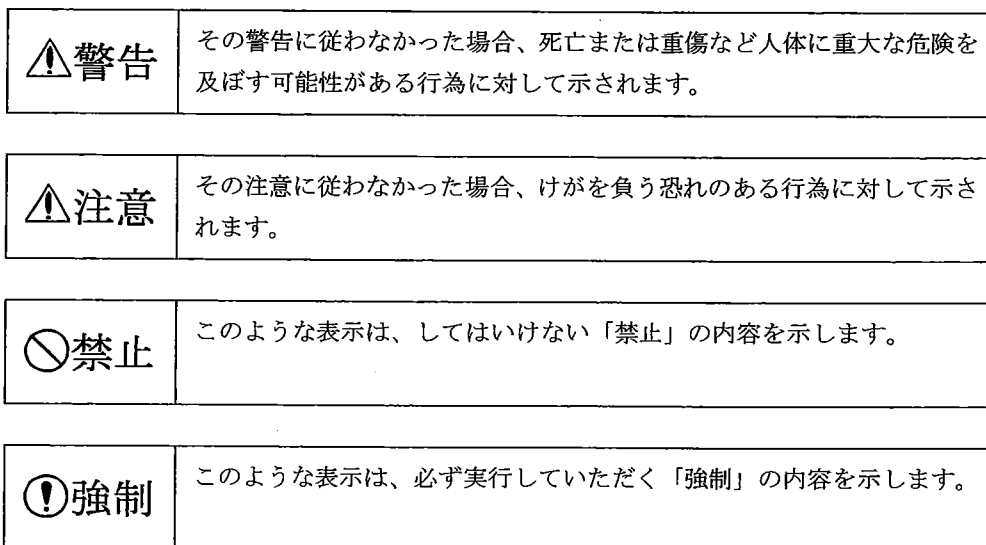 ⚠警告
その警告に従わなかった場合、死亡または重傷など人体に重大な危険を
及ぼす可能性がある行為に対して示されます。
⚠注意
その注意に従わなかった場合、けがを負う恐れのある行為に対して示さ
れます。
禁止
このような表示は、してはいけない「禁止」の内容を示します。
強制
このような表示は、必ず実行していただく「強制」の内容を示します。